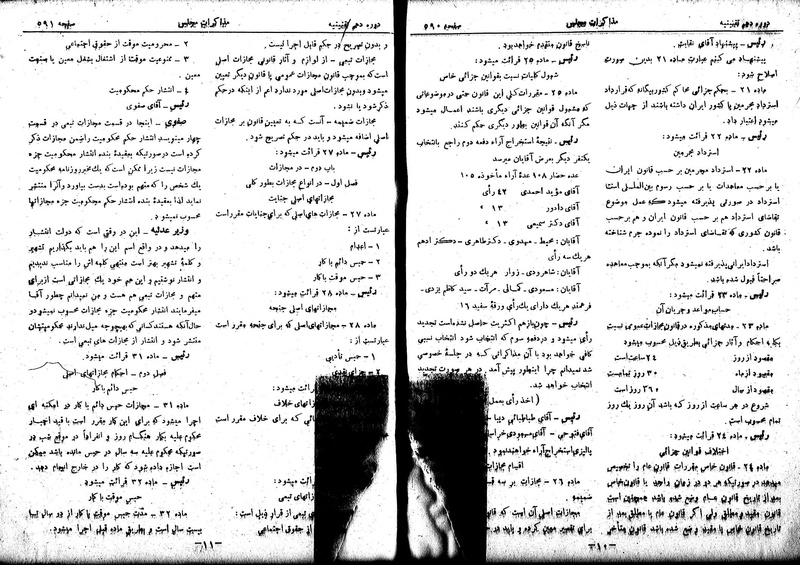 دوره دهم تقنینیه
مذاکرات مجلس
صفحه ۵۹۰
رئیس - پیشنهاد آقای نقابت.
پیشنهاد می کنم عبارت ماده ۲۱ بدین صورت
اصلاح شود:
ماده ۲۱ - بحکم جزائی محاکم کشور بیگانه که قرارداد
استرداد مجرمین با کشور ایران داشته باشند از جهات ذیل
میشود اعتبار داد.
رئیس - ماده ۲۲ قرائت میشود:
استرداد مجرمین
ماده ۲۲ - استرداد مجرمین بر حسب قانون ایران
یا بر حسب معاهدات یا بر حسب رسوم بین‌المللی است
استرداد در صورتی پذیرفته میشود که عمل موضوع
تقاضای استرداد هم بر حسب قانون ایران و هم بر حسب
قانون کشوری که تقاضای استرداد را نموده جرم شناخته
باشد.
استرداد ایرانی پذیرفته نمیشود مگر آنکه بموجب معاهده
صراحتاً قبول شده باشد.
رئیس - ماده ۲۳ قرائت میشود:
حساب مواعد و جریان آن
ماده ۲۳ - مدتهای مذکوره در قانون مجازات عمومی نسبت
بکلیه احکام و آثار جزائی بطریق ذیل محسوب میشود
مقصود از روز ۲۴ ساعت است
مقصود از ماه ۳۰ روز تمام است
مقصود از سال ۳۶۰ روز است
شروع در هر ساعت از روز که باشد آن روز یک روز
تمام محسوب است.
رئیس - ماده ۲۴ قرائت میشود:
اختلاف قوانین جزائی
ماده ۲۴ - قانون خاص مقررات قانون عام را تخصیص
میدهد در صورتیکه هر دو در زمان واحد یا قانون خاص
بعد از تاریخ قانون عام وضع شده باشد همچنان است
قانون مقید و مطلق ولی اگر قانون عام یا مطلق بعد از
تاریخ قانون خاص یا مقید وضع شده باشد قانون متأخر
ناسخ قانون متقدم خواهد بود.
رئیس - ماده ۲۵ قرائت میشود:
شمول کلیات نسبت بقوانین جزائی خاص
ماده ۲۵ - مقررات کلی این قانون حتی در موضوعاتی
که مشمول قوانین جزائی دیگری باشند اعمال میشود
مگر آنکه آن قوانین بطور دیگری حکم کنند.
رئیس - نتیجه استخراج آراء دفعه دوم راجع بانتخاب
یکنفر دیگر بعرض آقایان میرسد
عده حضار ۱۰۸ عدۀ آراء مأخوذه ۱۰۵
آقای مؤید احمدی ۴۲ رأی
آقای دادور ۱۳ »
آقای دکتر سمیعی ۱۳ »
آقایان: محیط - مهدوی - دکتر طاهری - دکتر ادهم
هریک سه رأی
آقایان: شاهرودی - زوار هریک دو رأی
آقایان: مسعودی - کسائی - مرآت - سید کاظم یزدی -
فرهمند هریک دارای یک رأی ورقۀ سفید ۱۶
رئیس - چون باز هم اکثریت حاصل نشده است تجدید
رأی میشود و در دفعه سوم که انتخاب شود انتخاب نسبی
کافی خواهد بود با آن مذاکراتی که در جلسۀ خصوصی
شد نمیدانم چرا اینطور پیش آمد. در هر صورت تجدید
انتخاب خواهد شد.
( اخذ رأی بعمل
رئیس - آقای طباطبائی دیبا
آقای فتوحی - آقای مسعودی خراسا
پالیزی استخراج آراء خواهند نمود
اقسام مجازات
ماده ۲۶ - مجازات بر سه ق
ضمیمه.
مجازات اصلی آن است که قانو
برای تقصیر معین کرده و باید در
- ۱۰ -
دوره دهم تقنینیه
مذاکرات مجلس
صفحه ۵۹۱
و بدون تصریح در حکم قابل اجرا نیست.
مجازات تبعی - از لوازم و آثار قانونی مجازات اصلی
است که بموجب قانون مجازات عمومی یا قانون دیگر تعیین
میشود و بدون مجازات اصلی مورد ندارد اعم از اینکه در حکم
ذکر شود یا نشود.
مجازات ضمیمه - آنست که به تعیین قانون بر مجازات
اصلی اضافه میشود و باید در حکم تصریح شود.
رئیس - ماده ۲۷ قرائت میشود:
باب دوم - در مجازات
فصل اول - در انواع مجازات بطور کلی
مجازاتهای اصلی جنایت
ماده ۲۷ - مجازات های اصلی که برای جنایات مقرر است
عبارتست از:
۱ - اعدام
۲ - حبس دائم با کار
۳ - حبس موقت با کار
رئیس - ماده ۲۸ قرائت میشود:
مجازاتهای اصلی جنحه
ماده ۲۸ - مجازاتهای اصلی که برای جنحه مقرر است
عبارتست از:
۱ - حبس تأدیبی
۲ - جزای نقدی
قرائت میشود:
زاتهای خلاف
ئی که برای خلاف مقرر است
قرائت میشود:
زاتهای تبعی
ی تبعی از قرار ذیل است:
از حقوق اجتماعی
۲ - محرومیت موقت از حقوق اجتماعی
۳ - ممنوعیت موقت از اشتغال بشغل معین یا صنعت
معین.
۴ - انتشار حکم محکومیت
رئیس - آقای صفوی
صفوی - اینجا در قسمت مجازات تبعی در قسمت
چهار مینویسد انتشار حکم محکومیت را ضمن مجازات ذکر
کرده است در صورتیکه بعقیدۀ بنده انتشار محکومیت جزء
مجازات نیست زیرا ممکن است که یک خبر روزنامه محکومیت
یک شخص را که متهم بوده است بدست بیاورد و آنرا منتشر
نماید لذا بعقیدۀ بنده انتشار حکم محکومیت جزء مجازاتها
محسوب نمیشود.
وزیر عدلیه - این در وقتی است که دولت انتشار
را میدهد و در واقع اسم این را هم باید بگذاریم تشهیر
و کلمۀ تشهیر بهتر است منتهی کلمه اش را مناسب ندیدیم
و انتشار نوشتیم و این هم خود یک مجازاتی است از برای
متهم و مجازات تبعی هم هست و من نمیدانم چطور آقا
میفرمایند انتشار محکومیت جزء مجازات محسوب نمیشود در
حال آنکه هستند کسانی که بهیچوجه میل ندارند محکومیتهاشان
منتشر شود و انتشار از مجازات های تبعی است.
رئیس - ماده ۳۱ قرائت میشود.
فصل دوم - احکام مجازاتهای اصلی
حبس دائم با کار
ماده ۳۱ - مجازات حبس دائم با کار در امکنه ای
اجرا میشود که برای این کار مقرر است با قید اجبار
محکوم علیه بکار هنگام روز و انفراداً در موقع شب در
صورتیکه محکوم علیه سه سال در حبس مانده باشد ممکن
است اجازه داده شود که کار را در خارج انجام دهد.
رئیس - ماده ۳۲ قرائت میشود:
حبس موقت با کار
ماده ۳۲ - مدت حبس موقت با کار از دو سال تا
بیست سال است و بطریق ماده قبل اجرا میشود.
- ۱۱ -